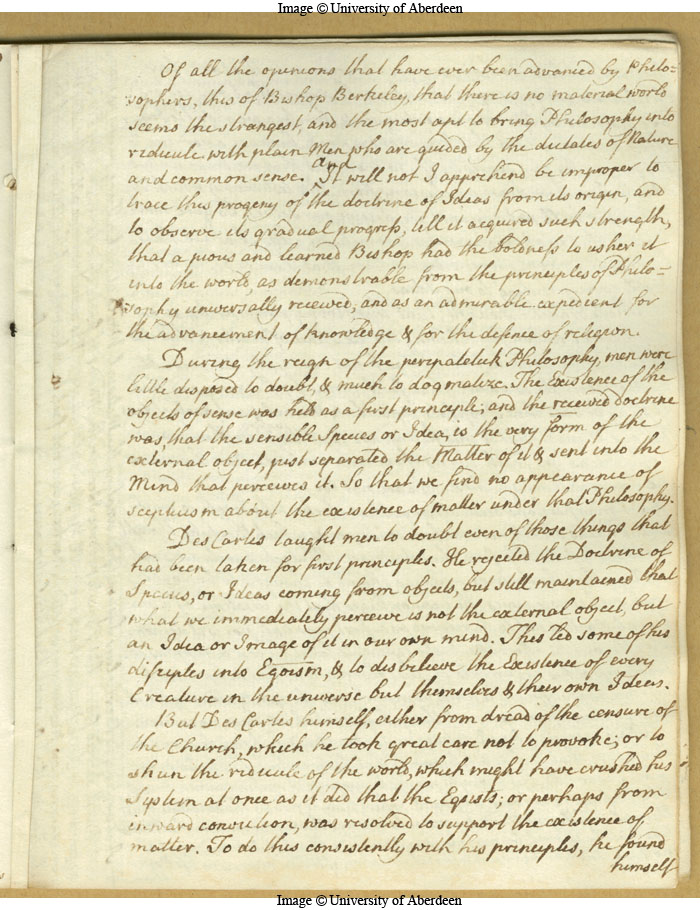 Image © University of Aberdeen
Of all the opinions that have ever been advanced by Philo=
sophers, this of Bishop Berkeley, that there is no material world
seems the strangest, and the most apt to bring Philosophy into
ridicule with plain Men who are guided by the dictates of Nature
and common sense. And It will not I apprehend be improper to
trace this progeny of the doctrine of Ideas from its origin, and
to observe its gradual progress, till it acquired such strength,
that a pious and learned Bishop had the boldness to usher it
into the world, as demonstrable from the principles of Philo=
sophy universally received, and as an admirable expedient for
the advancement of knowledge & for the defence of religion.
During the reign of the peripatetick Philosophy, men were
little disposed to doubt, & much to dogmatize. The Existence of the
objects of sense was held as a first principle; and the received doctrine
was, that the sensible Species or Idea, is the very form of the
external object, just separated the Matter of it & sent into the
Mind that perceives it. So that we find no appearance of
scepticism about the existence of matter under that Philosophy.
Des Cartes taught men to doubt even of those things that
had been taken for first principles. He rejected the Doctrine of
Species, or Ideas coming from objects, but still maintained that
what we immediately perceive is not the external object, but
an Idea or Image of it in our own mind. This led some of his
disciples into Egoism, & to disbelieve the Existence of every
Creature in the universe but themselves & their own Ideas.
But Des Cartes himself, either from dread of the censure of
the Church, which he took great care not to provoke; or to
shun the ridicule of the world, which might have crushed his
System at once as it did that the Egoists; or perhaps from
inward conviction, was resolved to support the existence of
matter. To do this consistently with his principles, he found
himself
Image © University of Aberdeen